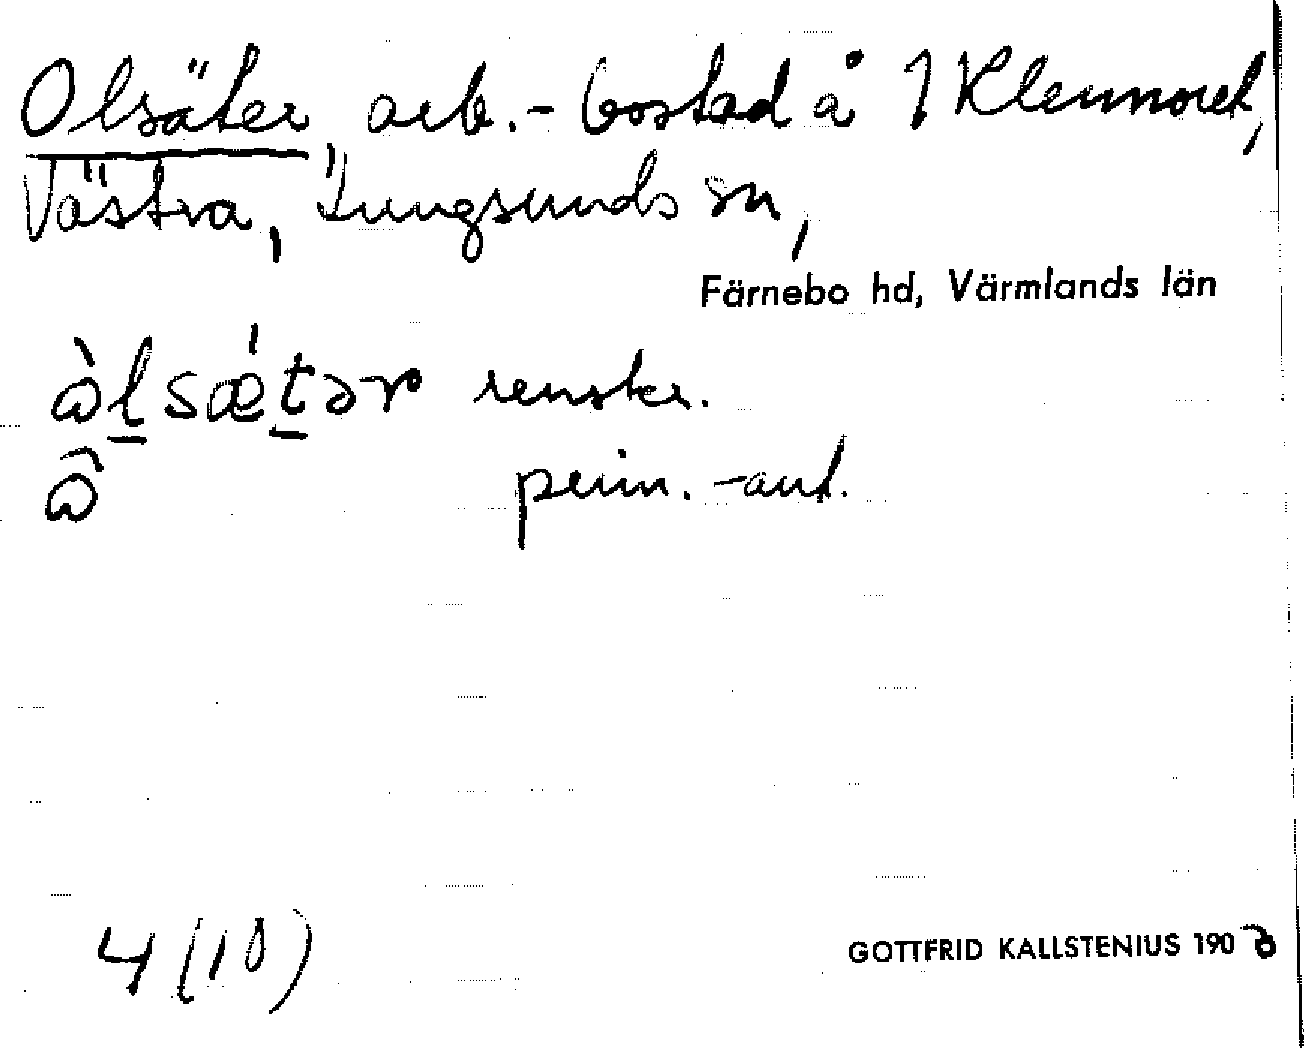 Olsäter, arb.-bostad å 1 Klenmoret,
Västra, Lungsunds sn,
Färnebo hd, Värmlands län
ὼlsǽtər renskr.
ω̂ prim.-ant.
4 (10)
GOTTFRID KALLSTENIUS 190